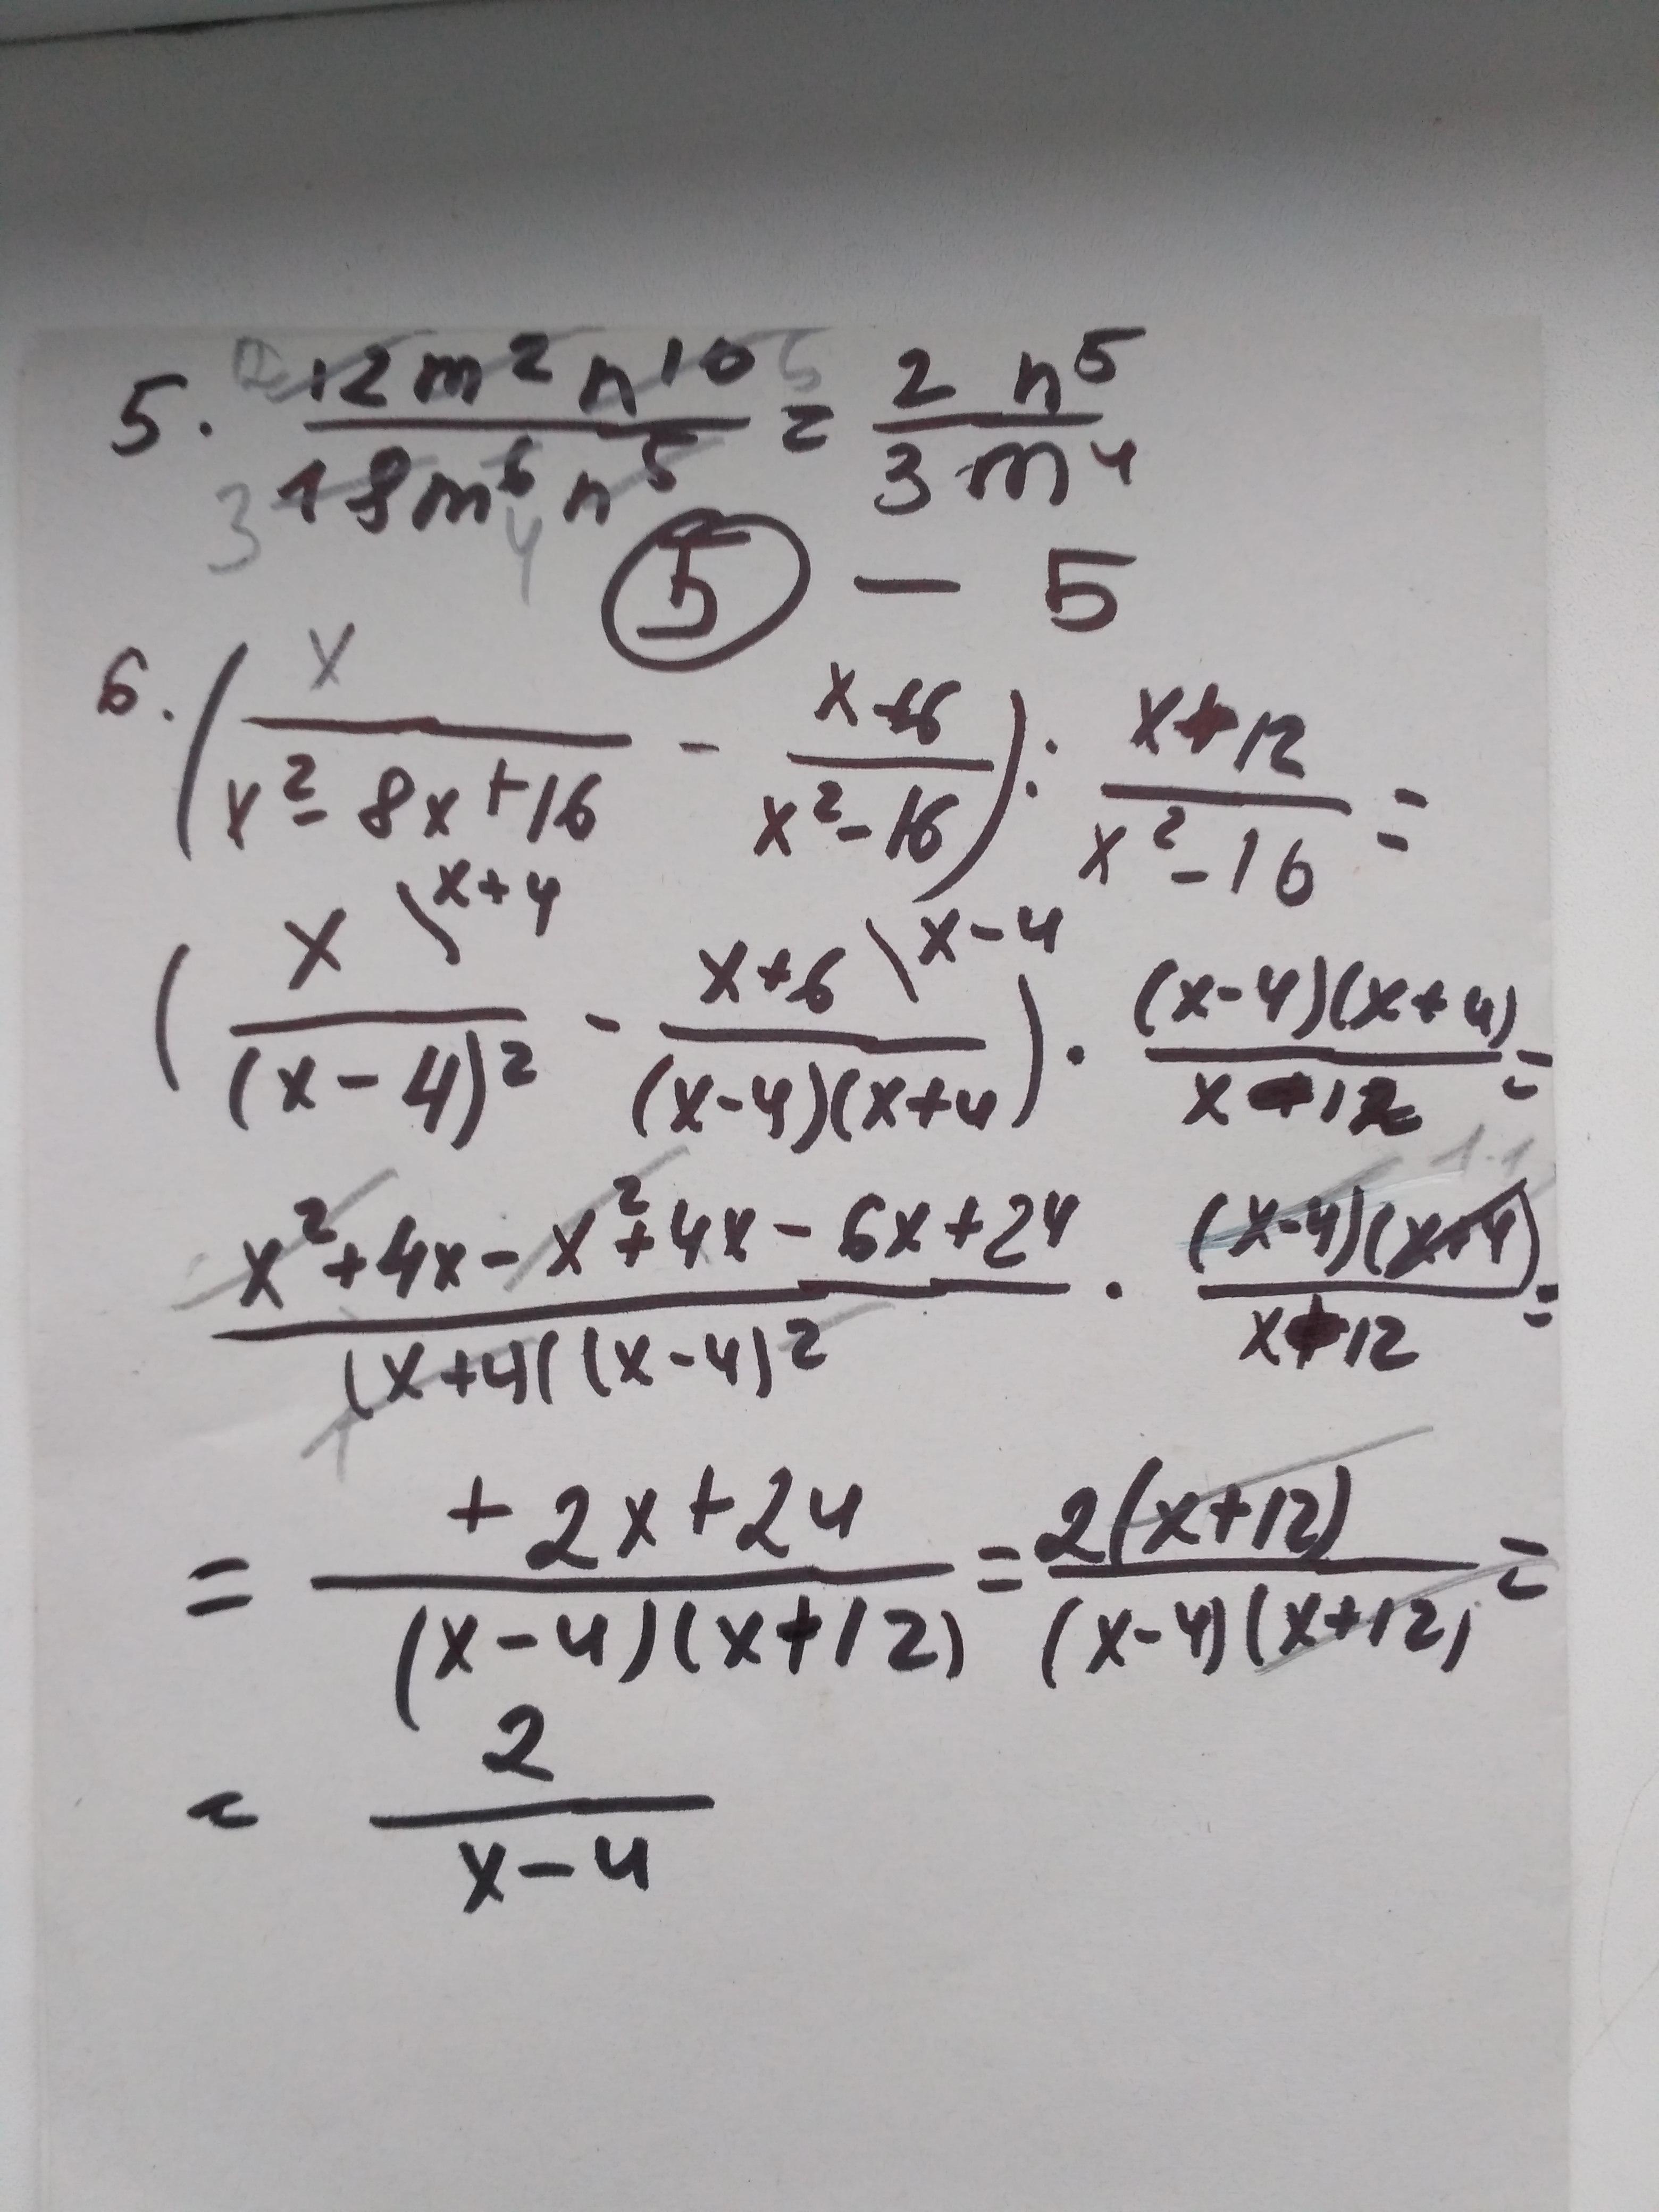 5. 12m²n¹⁰ / 18m⁶n⁵ = 2n⁵ / 3m⁴
3 4 5
5 — 5
6. (x / (x²-8x+16) - (x+6) / (x²-16)) : (x+12) / (x²-16) =
(x \x+4 / (x-4)² - x+6 \x-4 / (x-4)(x+4)) · (x-4)(x+4) / x+12 =
x²+4x-x²+4x-6x+24 / (x+4)((x-4)² · (x-4)(x+4) / x+12 =
= +2x+24 / (x-4)(x+12) = 2(x+12) / (x-4)(x+12) =
= 2 / x-4